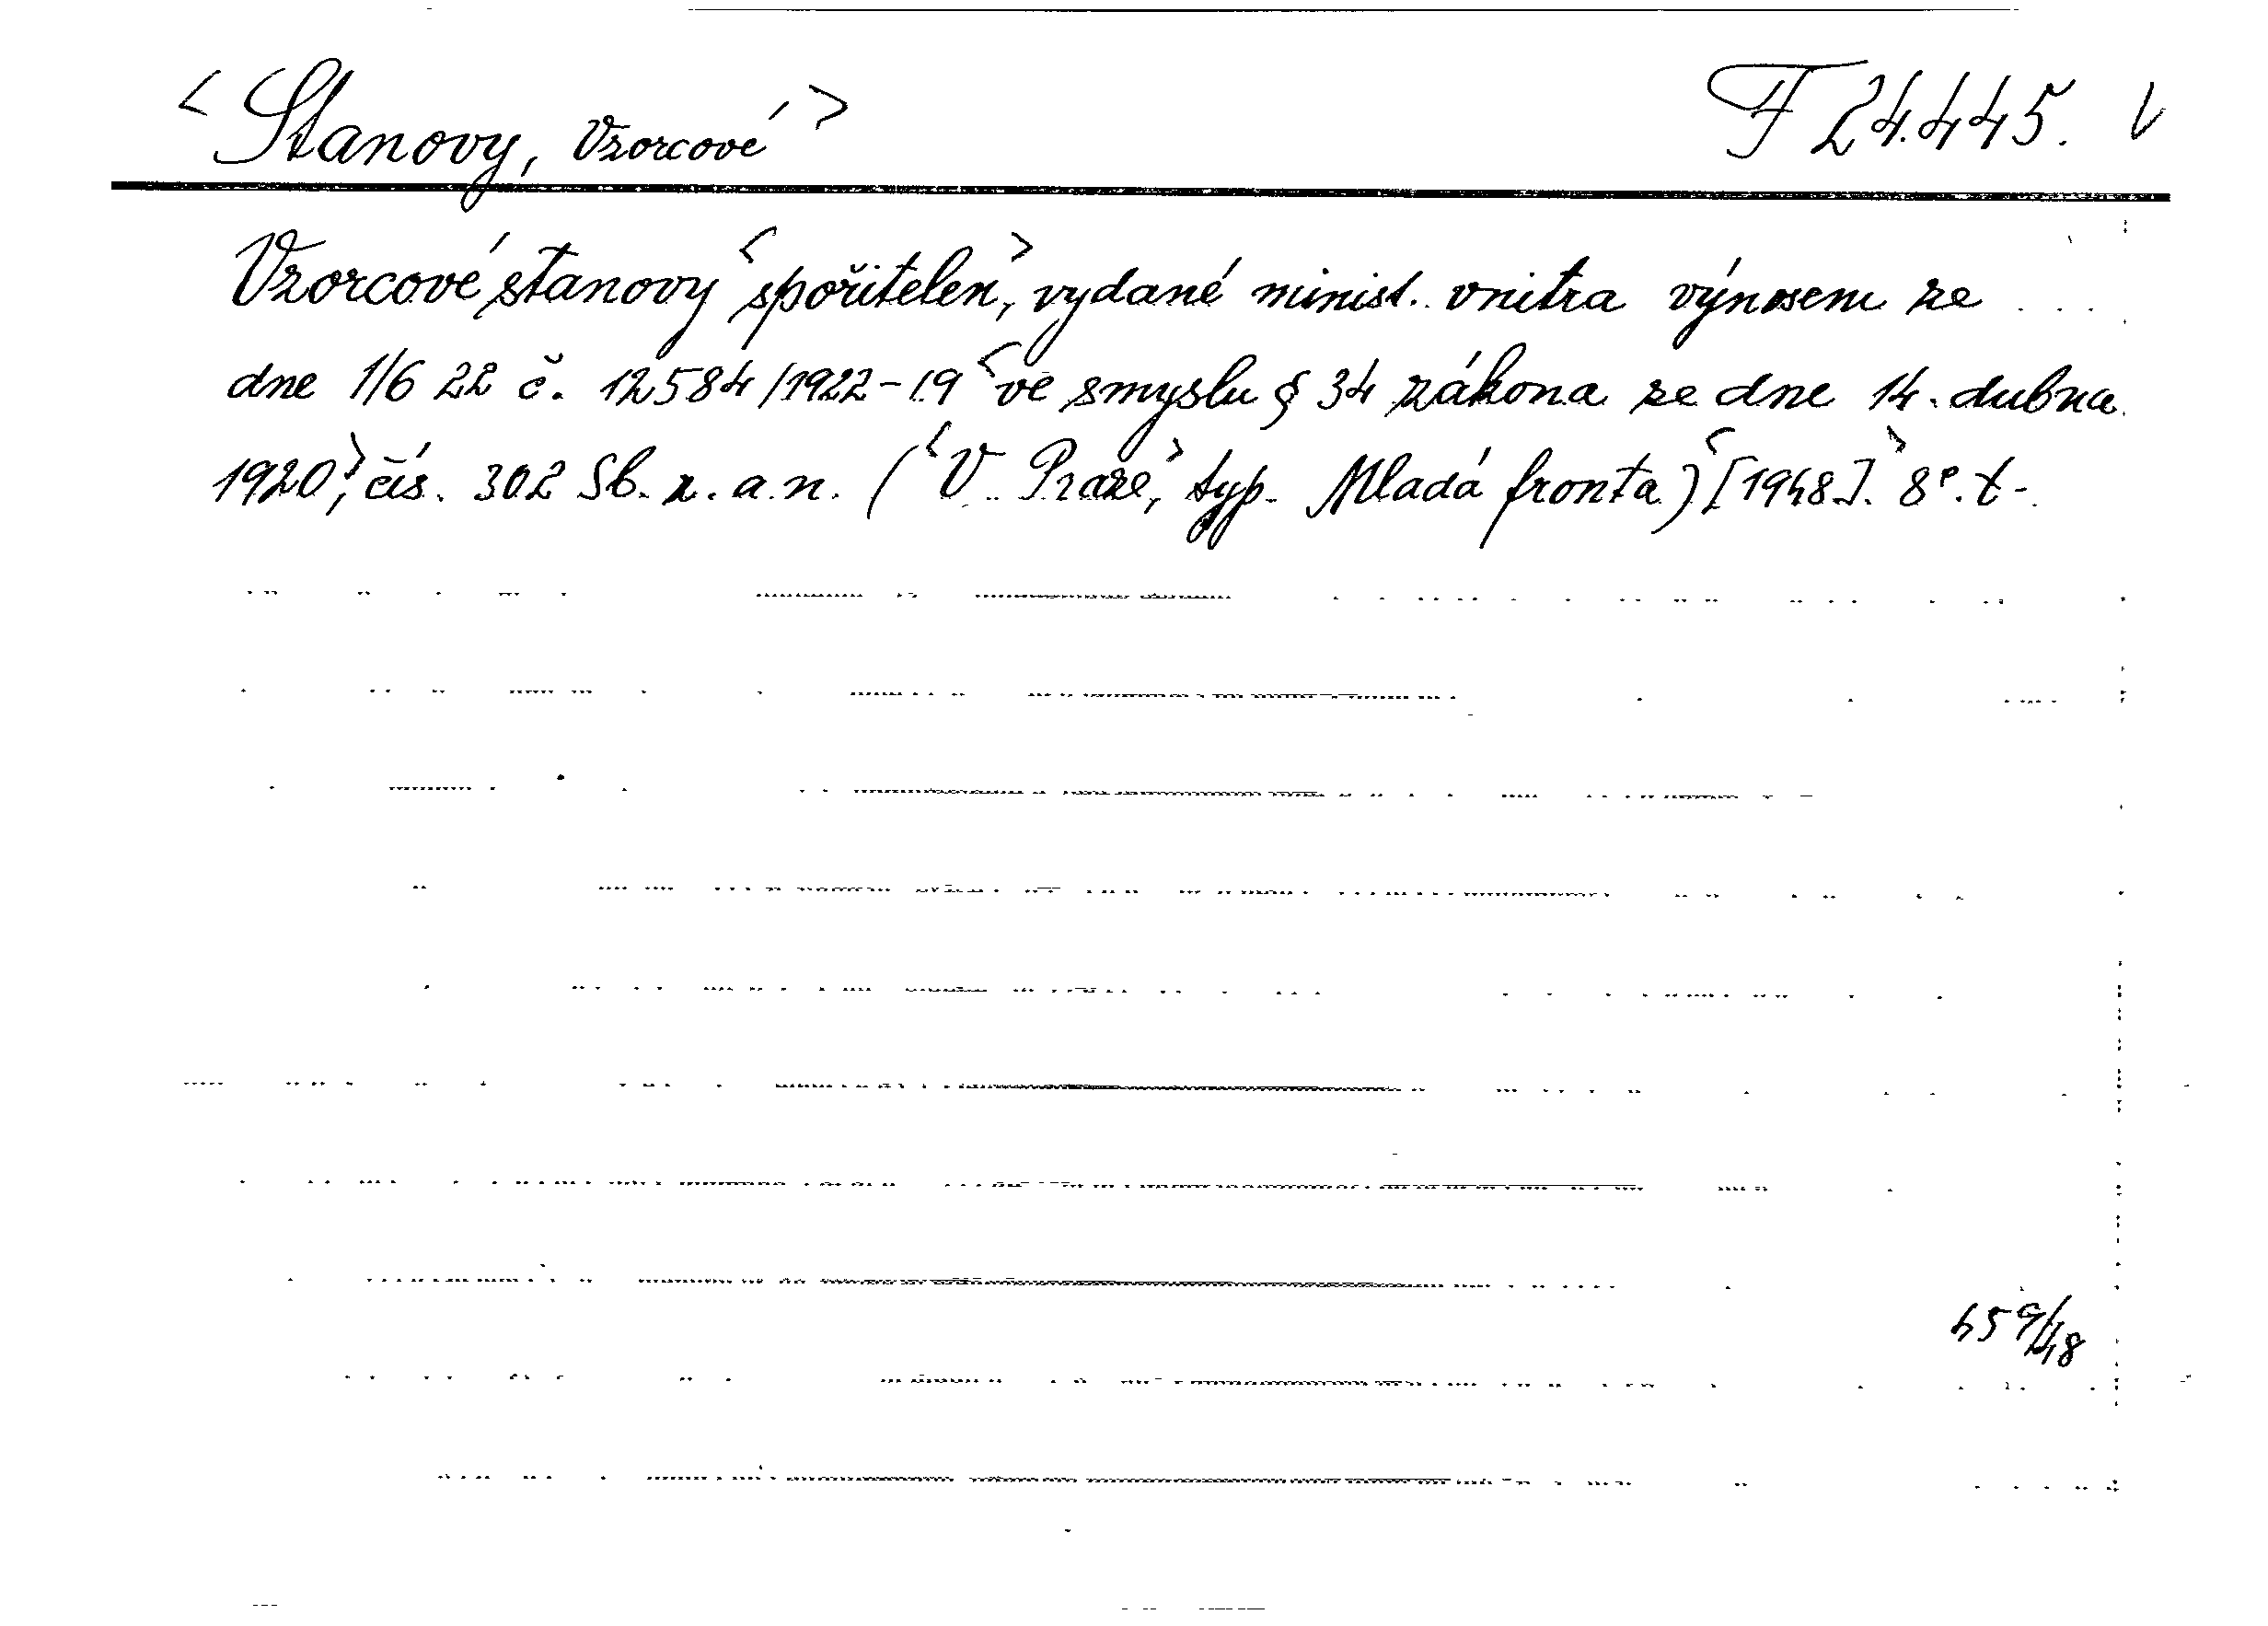 <Stanovy, Vzorcové> F 24.445. V
Vzorcové stanovy <spořitelen>, vydané minist. vnitra výnosem ze
dne 1/6 22 č. 12584/1922-19 <ve smyslu § 34 zákona ze dne 14. dubna
1920>, čís. 302 Sb. z. a. n. (<V Praze,> typ. Mladá fronta) <[1948].> 8°. t-.
459/48